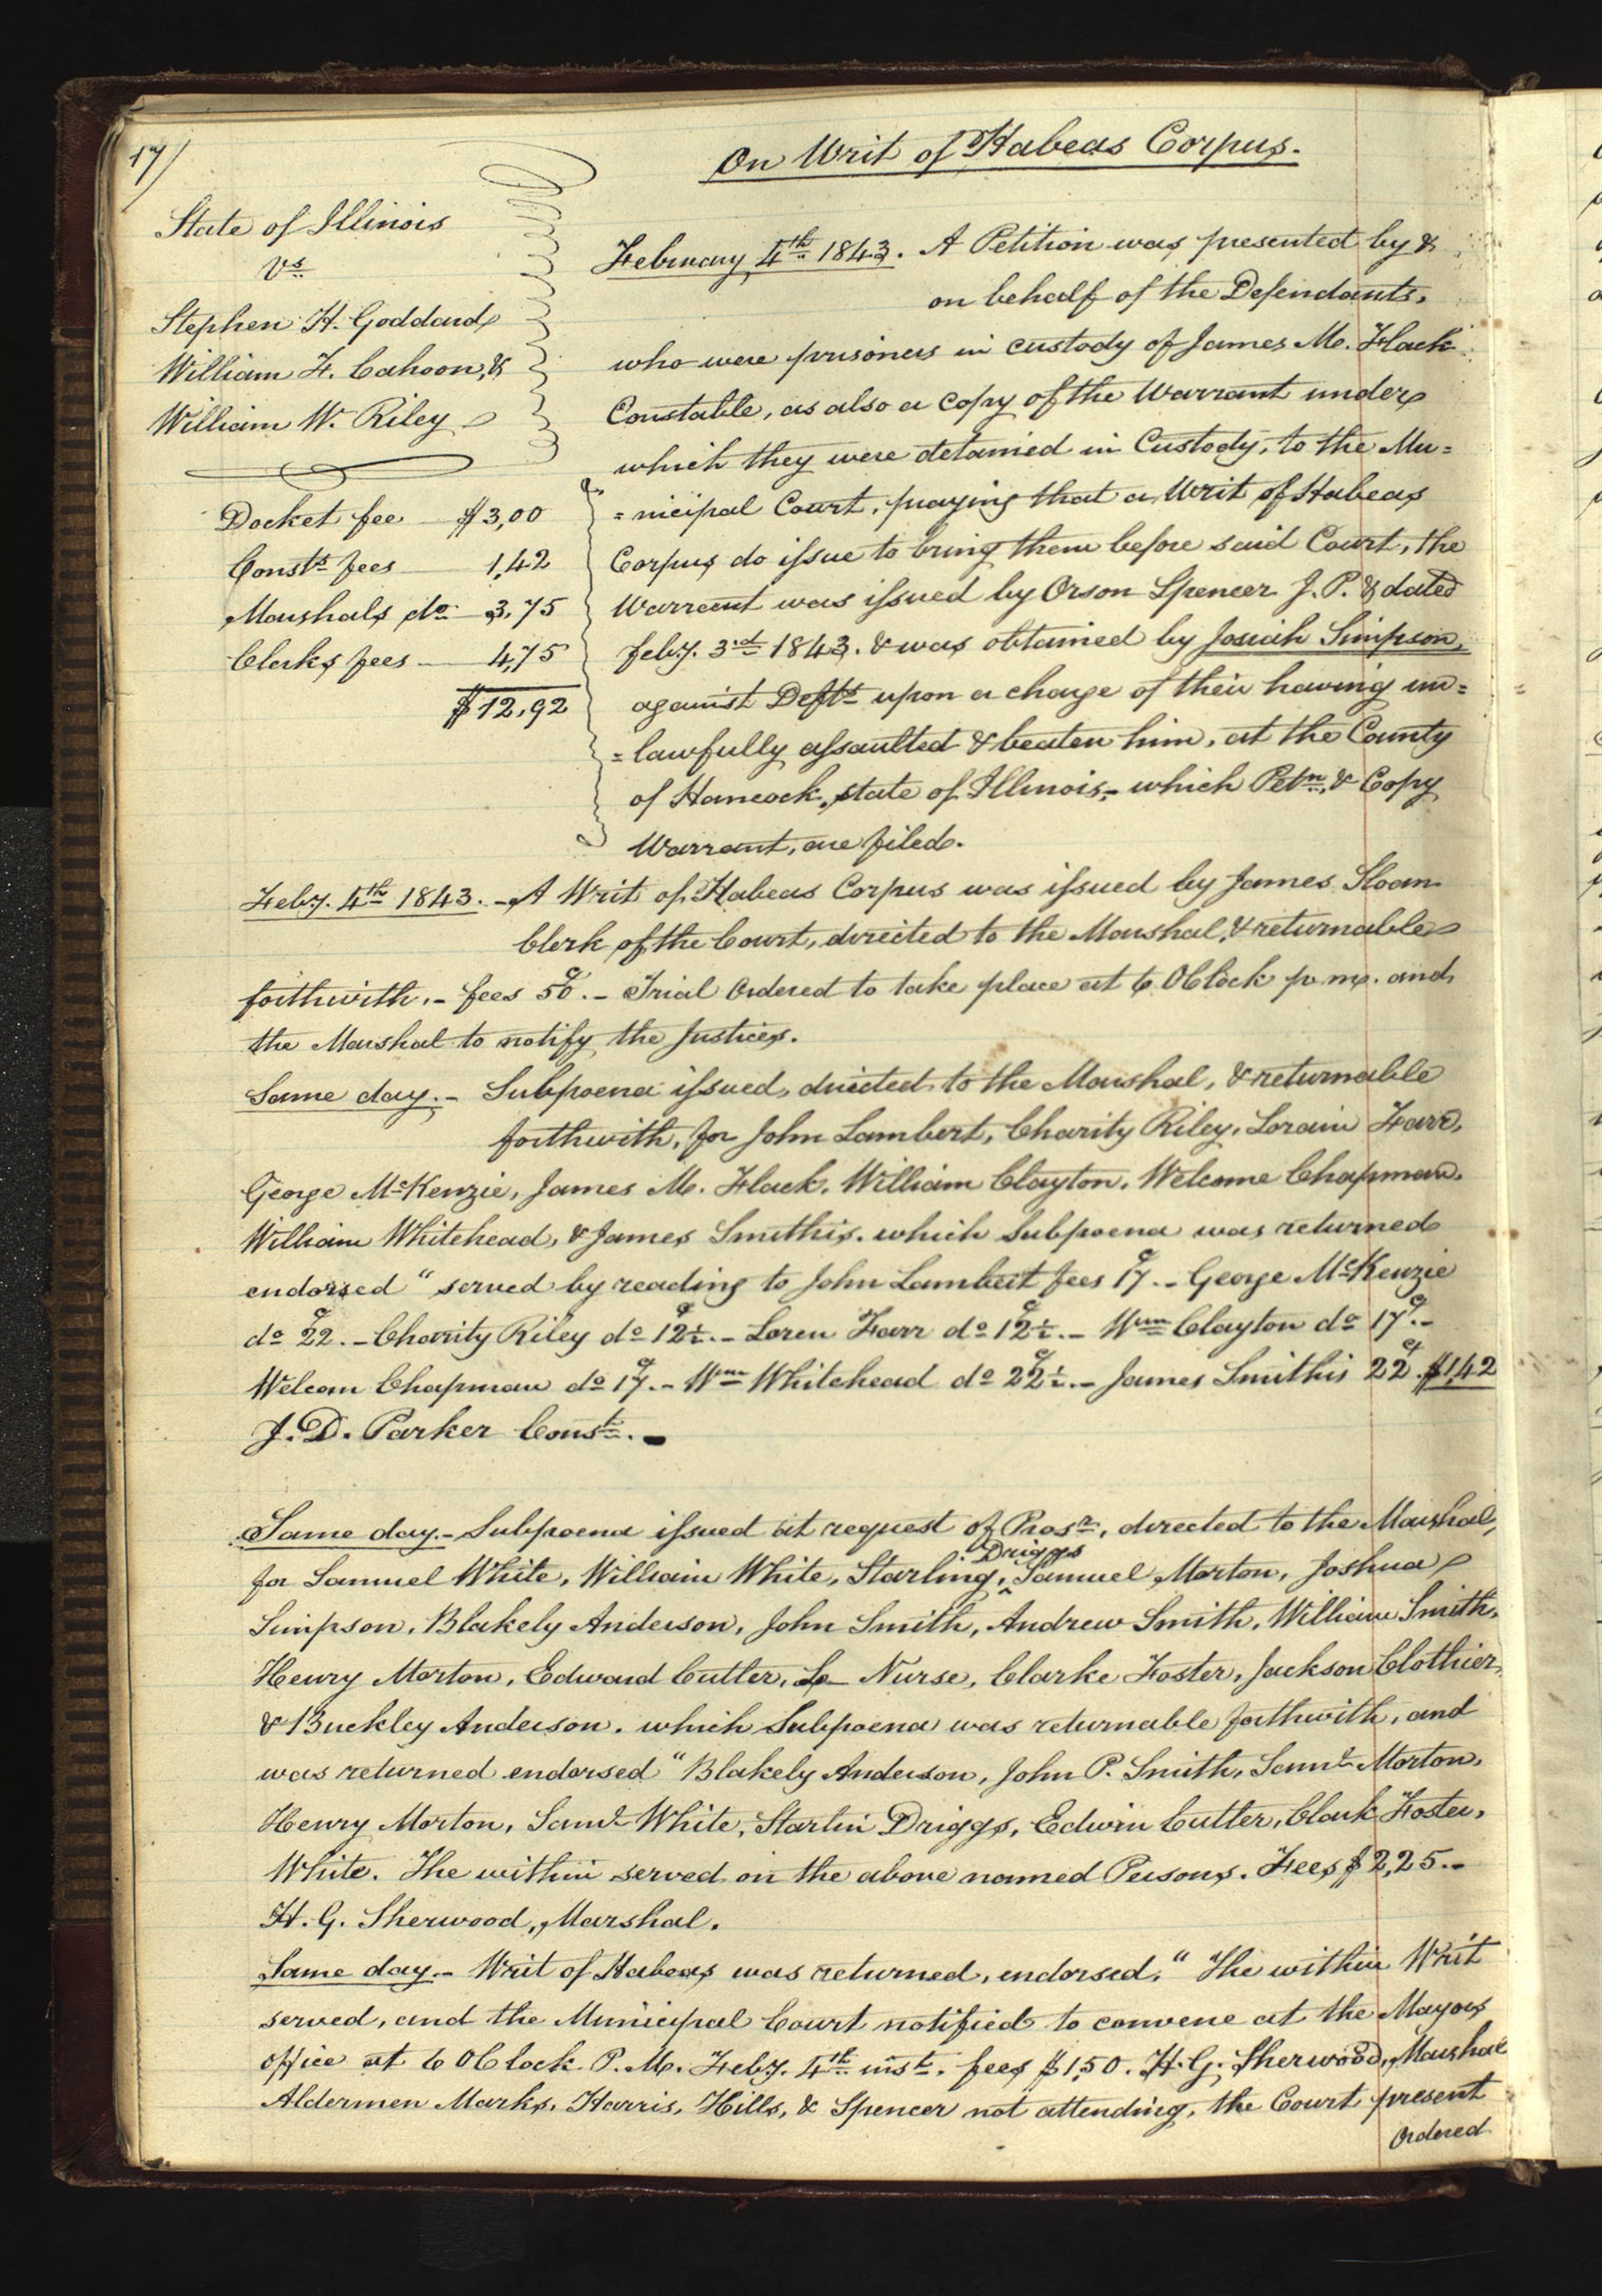 17/
On Writ of Habeas Corpus.
State of Illinois
Vs
Stephen H. Goddard
William F. Cahoon, &
William W. Riley
Docket fee $3,00
Consts fees 1,42
Marshals do 3,75
Clerks fees 4,75
$12,92
February 4th 1843. A Petition was presented by &
on behalf of the Defendants,
who were prisoners in custody of James M. Flack
Constable, as also a copy of the Warrant under
which they were detained in Custody, to the Mu=
=nicipal Court, praying that a Writ of Habeas
Corpus do issue to bring them before said Court, the
Warrant was issued by Orson Spencer J. P. & dated
feby. 3rd 1843. & was obtained by Josiah Simpson,
against Defts upon a charge of their having un=
=lawfully assaulted & beaten him, at the County
of Hancock, state of Illinois,- which Petn. & Copy
Warrant, are filed.
Feby. 4th 1843. - A Writ of Habeas Corpus was issued by James Sloan
Clerk of the Court, directed to the Marshal, & returnable
forthwith. - fees 50c. - Trial Ordered to take place at 6 OClock p. m. and
the Marshal to notify the Justices.
Same day. - Subpoena issued, directed to the Marshal, & returnable
forthwith, for John Lambert, Charity Riley, Lorain Farr,
George McKenzie, James M. Flack, William Clayton, Welcome Chapman,
William Whitehead, & James Smithis. which Subpoena was returned
endorsed "served by reading to John Lambert fees 17c. - George McKenzie
do 22c. - Charity Riley do 12½c. - Loren Farr do 12½c. - Wm Clayton do 17c. -
Welcom Chapman do 17c. - Wm Whitehead do 22½c. - James Smithis 22c. $1,42
J. D. Parker Const. -
Same day. - Subpoena issued at request of Prosn, directed to the Marshal,
for Samuel White, William White, Starling, Driggs Samuel Morton, Joshua
Simpson, Blakely Anderson, John Smith, Andrew Smith, William Smith,
Henry Morton, Edward Cutler, Le Nurse, Clarke Foster, Jackson Clothier,
& Buckley Anderson. which Subpoena was returnable forthwith, and
was returned endorsed "Blakely Anderson, John P. Smith, Saml Morton,
Henry Morton, Saml White, Starlin Driggs, Edwin Cutler, Clark Foster,
White. The within served on the above named Persons. Fees $2,25. -
H. G. Sherwood, Marshal.
Same day. - Writ of Habeas was returned, endorsed, "The within Writ
served, and the Municipal Court notified to convene at the Mayors
office at 6 OClock P. M. Feby. 4th inst. fees $1,50. H. G. Sherwood, Marshal
Aldermen Marks, Harris, Hills, & Spencer not attending, the Court present
Ordered